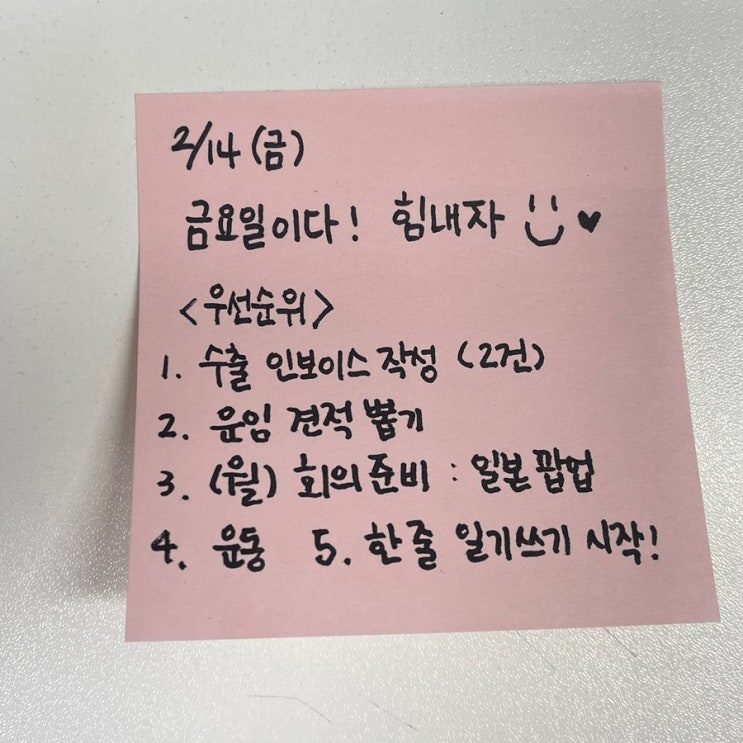 2/14 (금)
금요일이다! 힘내자 ♥
<우선순위>
1. 수출 인보이스 작성 (2건)
2. 운임 견적 뽑기
3. (월) 회의 준비 : 일본 팝업
4. 운동 5. 한 줄 일기쓰기 시작!